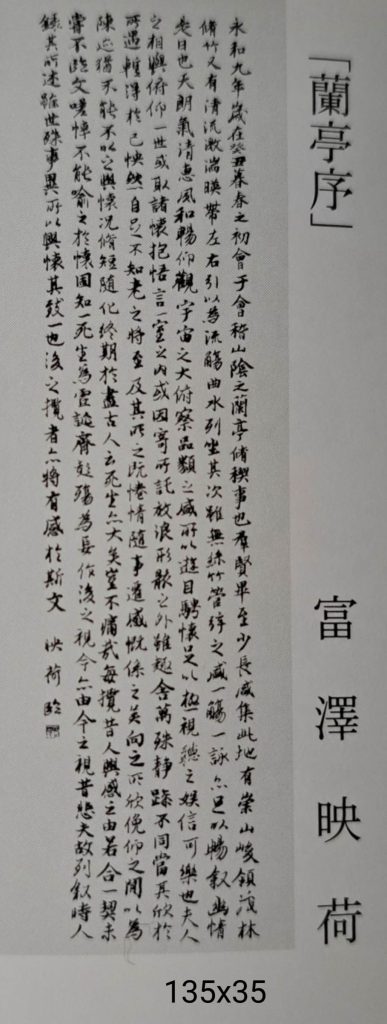 「蘭亭序」
富澤映荷
永和九年歲在癸丑暮春之初會于會稽山陰之蘭亭脩稧事也羣賢畢至少長咸集此地有崇山峻領茂林
脩竹又有清流激湍暎帶左右引以為流觴曲水列坐其次雖無絲竹管弦之盛一觴一詠亦足以暢叙幽情
是日也天朗氣清惠風和暢仰觀宇宙之大俯察品類之盛所以遊目騁懷足以極視聽之娛信可樂也夫人
之相與俯仰一世或取諸懷抱悟言一室之內或因寄所託放浪形骸之外雖趣舍萬殊靜躁不同當其欣於
所遇暫得於己怏然自足不知老之將至及其所之既惓情隨事遷感慨係之矣向之所欣俛仰之閒以為
陳迹猶不能不以之興懷況脩短隨化終期於盡古人云死生亦大矣豈不痛哉每攬昔人興感之由若合一契未
嘗不臨文嗟悼不能喻之於懷固知一死生為虛誕齊彭殤為妄作後之視今亦由今之視昔悲夫故列叙時人
錄其所述雖世殊事異所以興懷其致一也後之攬者亦將有感於斯文 映荷臨
135x35